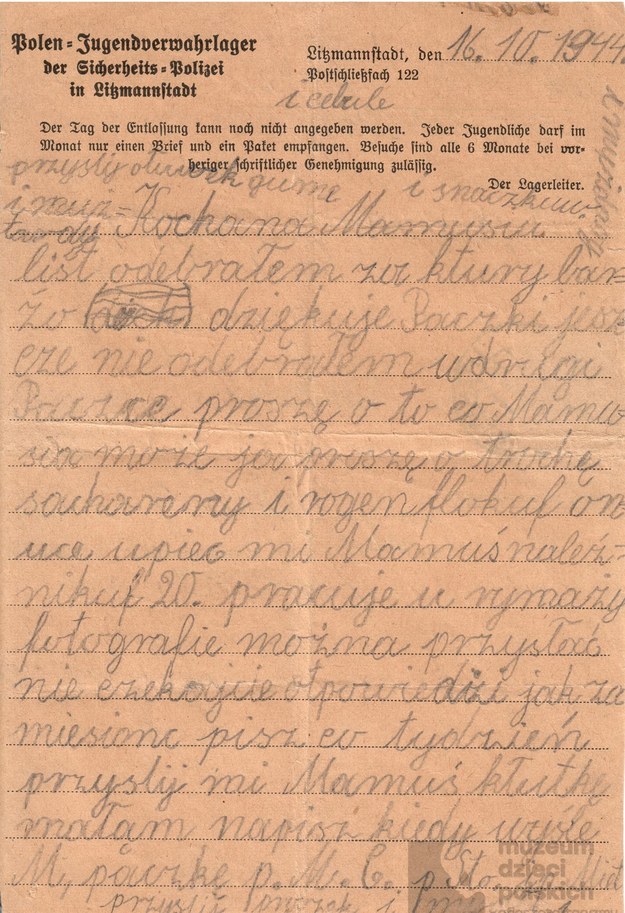 Polen=Jugendverwahrlager
der Sicherheits=Polizei
in Litzmannstadt
Litzmannstadt, den 16. 10. 1944.
Postschließfach 122
i cebule
Der Tag der Entlassung kann noch nicht angegeben werden. Jeder Jugendliche darf im
Monat nur einen Brief und ein Paket empfangen. Besuche sind alle 6 Monate bei vor=
heriger schriftlicher Genehmigung zulässig.
Der Lagerleiter.
przyslij gume
Kochana Mamusiu
list odebrałem za ktury bar=
zo dziękuje Paczki jesz
cze nie odebrałem w drugi
Paczce proszę o to co Mamu
sia może ja proszę o trochę
sacharyny i rogen flokuf
upiec mi Mamuś naleź=
nikuf 20. pracuje u rymaży
fotografie można przysłać
nie czekajcie otpowiedzi jak za
miesionc pisz co tydzień
przyslij mi Mamuś kłutkę
małąm napisz kiedy wysle
M. paczkę p. M. C. p.
przyslij i
muzeum
dzieci
polskich